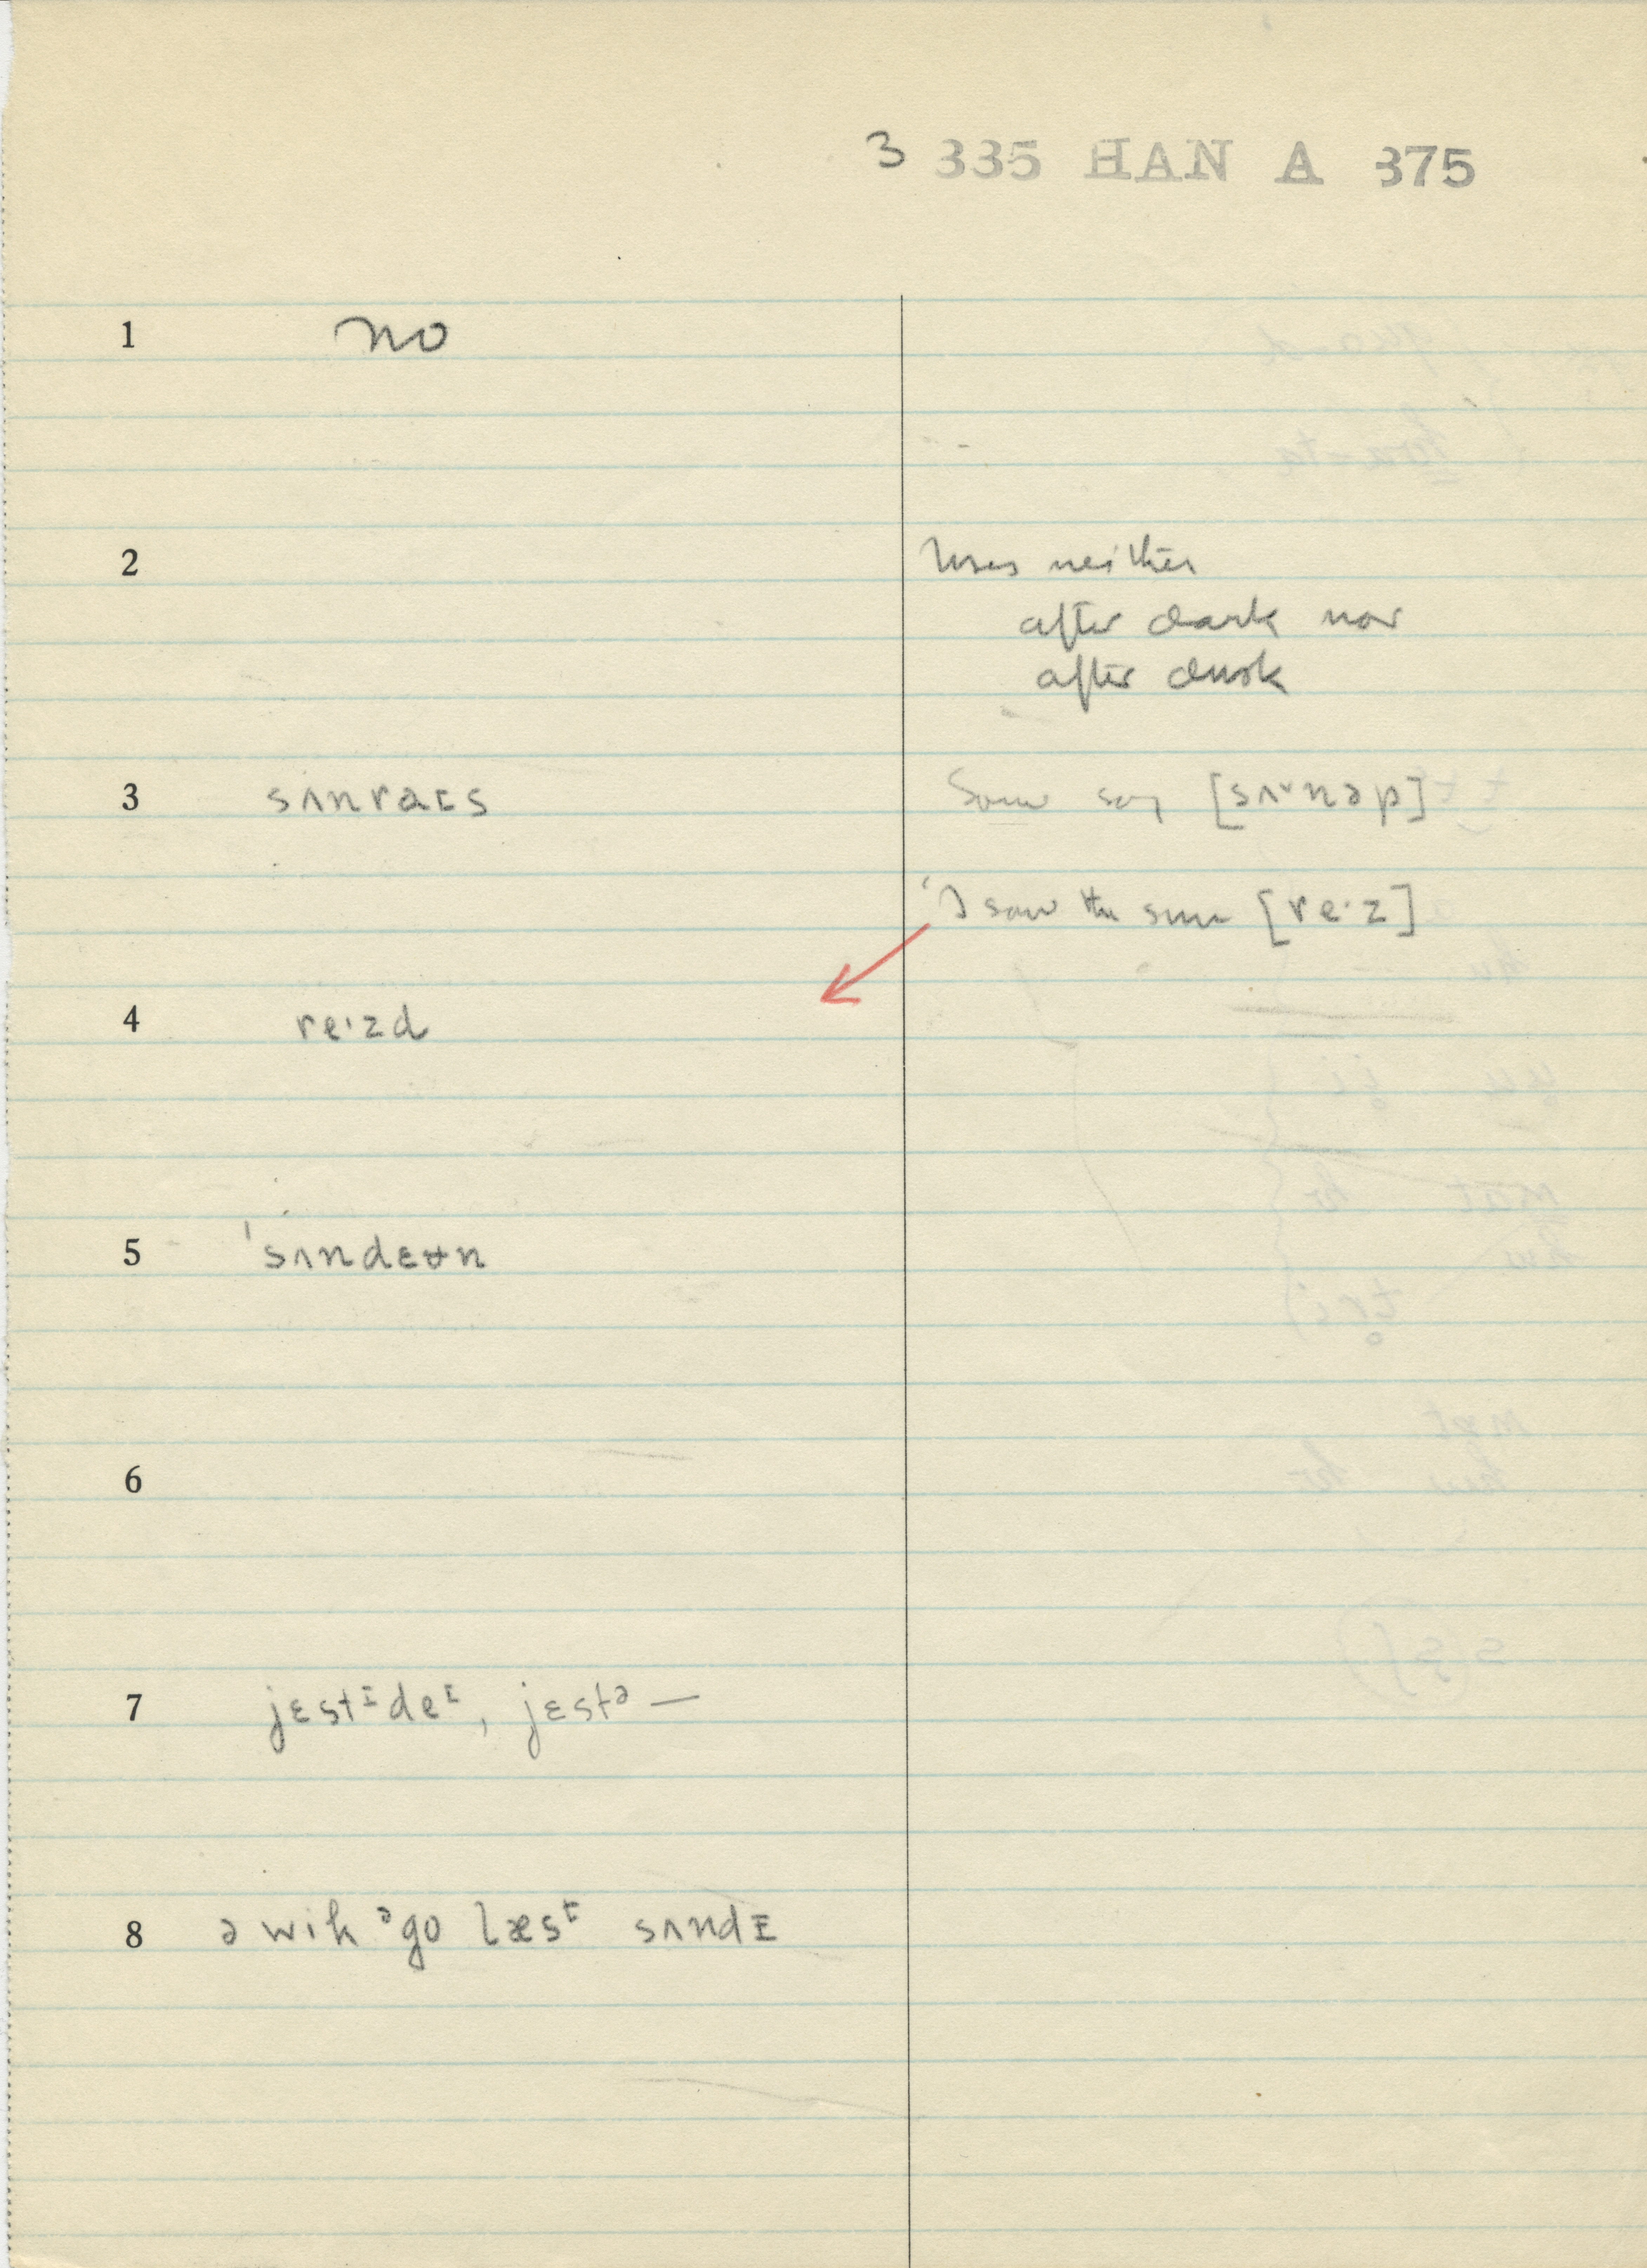 3 335 HAN A 375
1 no
2 Uses neither
after dark nor
after dusk
3 sʌnraɪs Some say [sʌ˅nəp]
'I saw the sun [re·z]
4 re·zd
5 'sʌndɛʉn
6
7 jɛstᵻdeᶦ, jɛstᵊ —
8 ə wik ᵊgo læsᵗ sʌndɪ